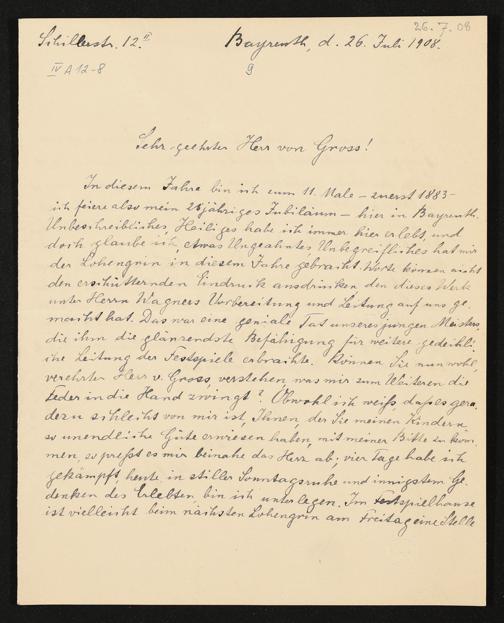 26.7.08
Schillerstr. 12.II
Bayreuth, d. 26. Juli 1908.
IV A 12-8
9
Sehr geehrter Herr von Gross!
In diesem Jahre bin ich zum 11. Male – zuerst 1883 –
ich feiere also mein 25jähriges Jubiläum – hier in Bayreuth.
Unbeschreibliches, Heiliges habe ich immer hier erlebt, und
doch glaube ich, etwas Ungeahntes Unbegreifliches hat mir
der Lohengrin in diesem Jahre gebracht. Worte können nicht
den erschütternden Eindruck ausdrücken den dieses Werk
unter Herrn Wagners Vorbereitung und Leitung auf uns ge-
macht hat. Das war eine geniale Tat unseres jungen Meisters,
die ihm die glänzendste Befähigung für weitere gedeihli-
che Leitung der Festspiele erbrachte. Können Sie nun wohl,
verehrter Herr v. Gross, verstehen, was mir zum Weiteren die
Feder in die Hand zwingt? Obwohl ich weiß, daß es gera-
dezu schlecht von mir ist, Ihnen, der Sie meinen Kindern
so unendliche Güte erwiesen haben, mit meiner Bitte zu kom-
men, so preßt es mir beinahe das Herz ab; vier Tage habe ich
gekämpft, heute in stiller Sonntagsruhe und innigstem Ge-
denken des Erlebten, bin ich unterlegen. Im Festspielhause
ist vielleicht beim nächsten Lohengrin am Freitag eine Stelle